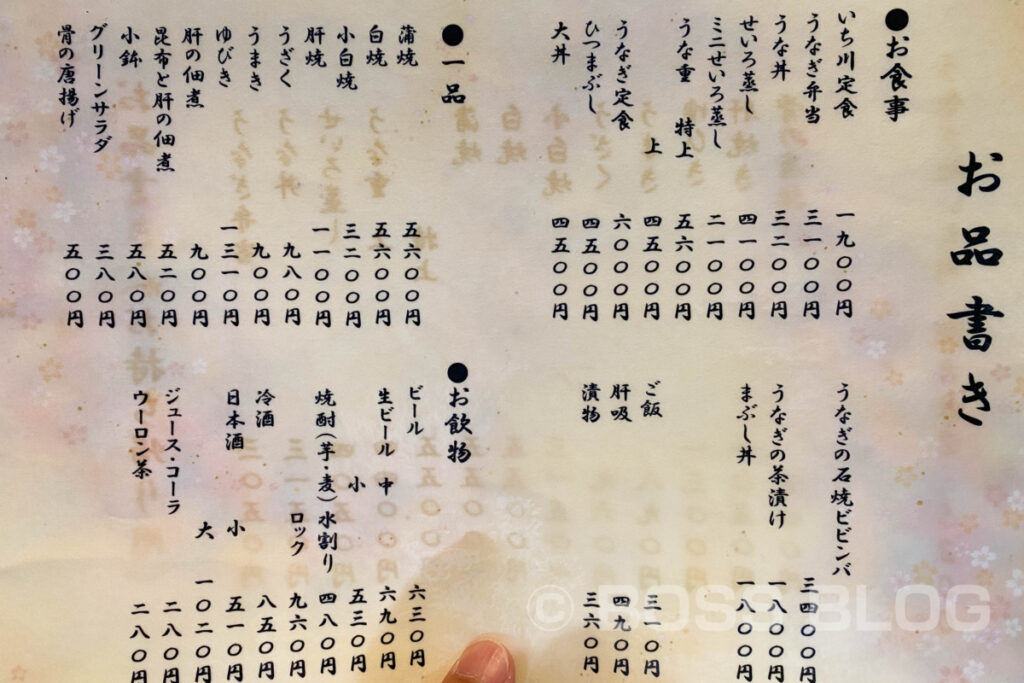 お品書き
●お食事
いち川定食 一九〇〇円
うなぎ弁当 三一〇〇円
うな丼 三二〇〇円
せいろ蒸し 四一〇〇円
ミニせいろ蒸し 二一〇〇円
うな重 特上 五六〇〇円
上 四五〇〇円
うなぎ定食 六〇〇〇円
ひつまぶし 四五〇〇円
大丼 四五〇〇円
うなぎの石焼ビビンバ 三四〇〇円
うなぎの茶漬け 一八〇〇円
まぶし丼 一八〇〇円
ご飯 三一〇円
肝吸 四九〇円
漬物 三六〇円
●一品
蒲焼 五六〇〇円
白焼 五六〇〇円
小白焼 三二〇〇円
肝焼 一一〇〇円
うざく 九八〇円
うまき 九〇〇円
ゆびき 一三一〇円
肝の佃煮 九〇〇円
昆布と肝の佃煮 五二〇円
小鉢 五八〇円
グリーンサラダ 三八〇円
骨の唐揚げ 五〇〇円
●お飲物
ビール 六三〇円
生ビール 中 六九〇円
小 五三〇円
焼酎(芋・麦)水割り 四八〇円
ロック 九六〇円
冷酒 八五〇円
日本酒 小 五一〇円
大 一〇二〇円
ジュース・コーラ 二八〇円
ウーロン茶 二八〇円
© BOSS BLOG